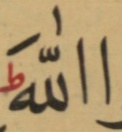 ا اللّٰهَ ط